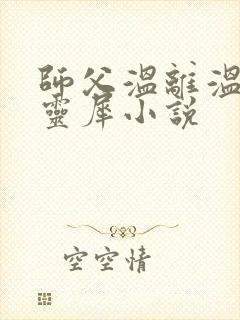 師父溫離溫
靈犀小說
空空情